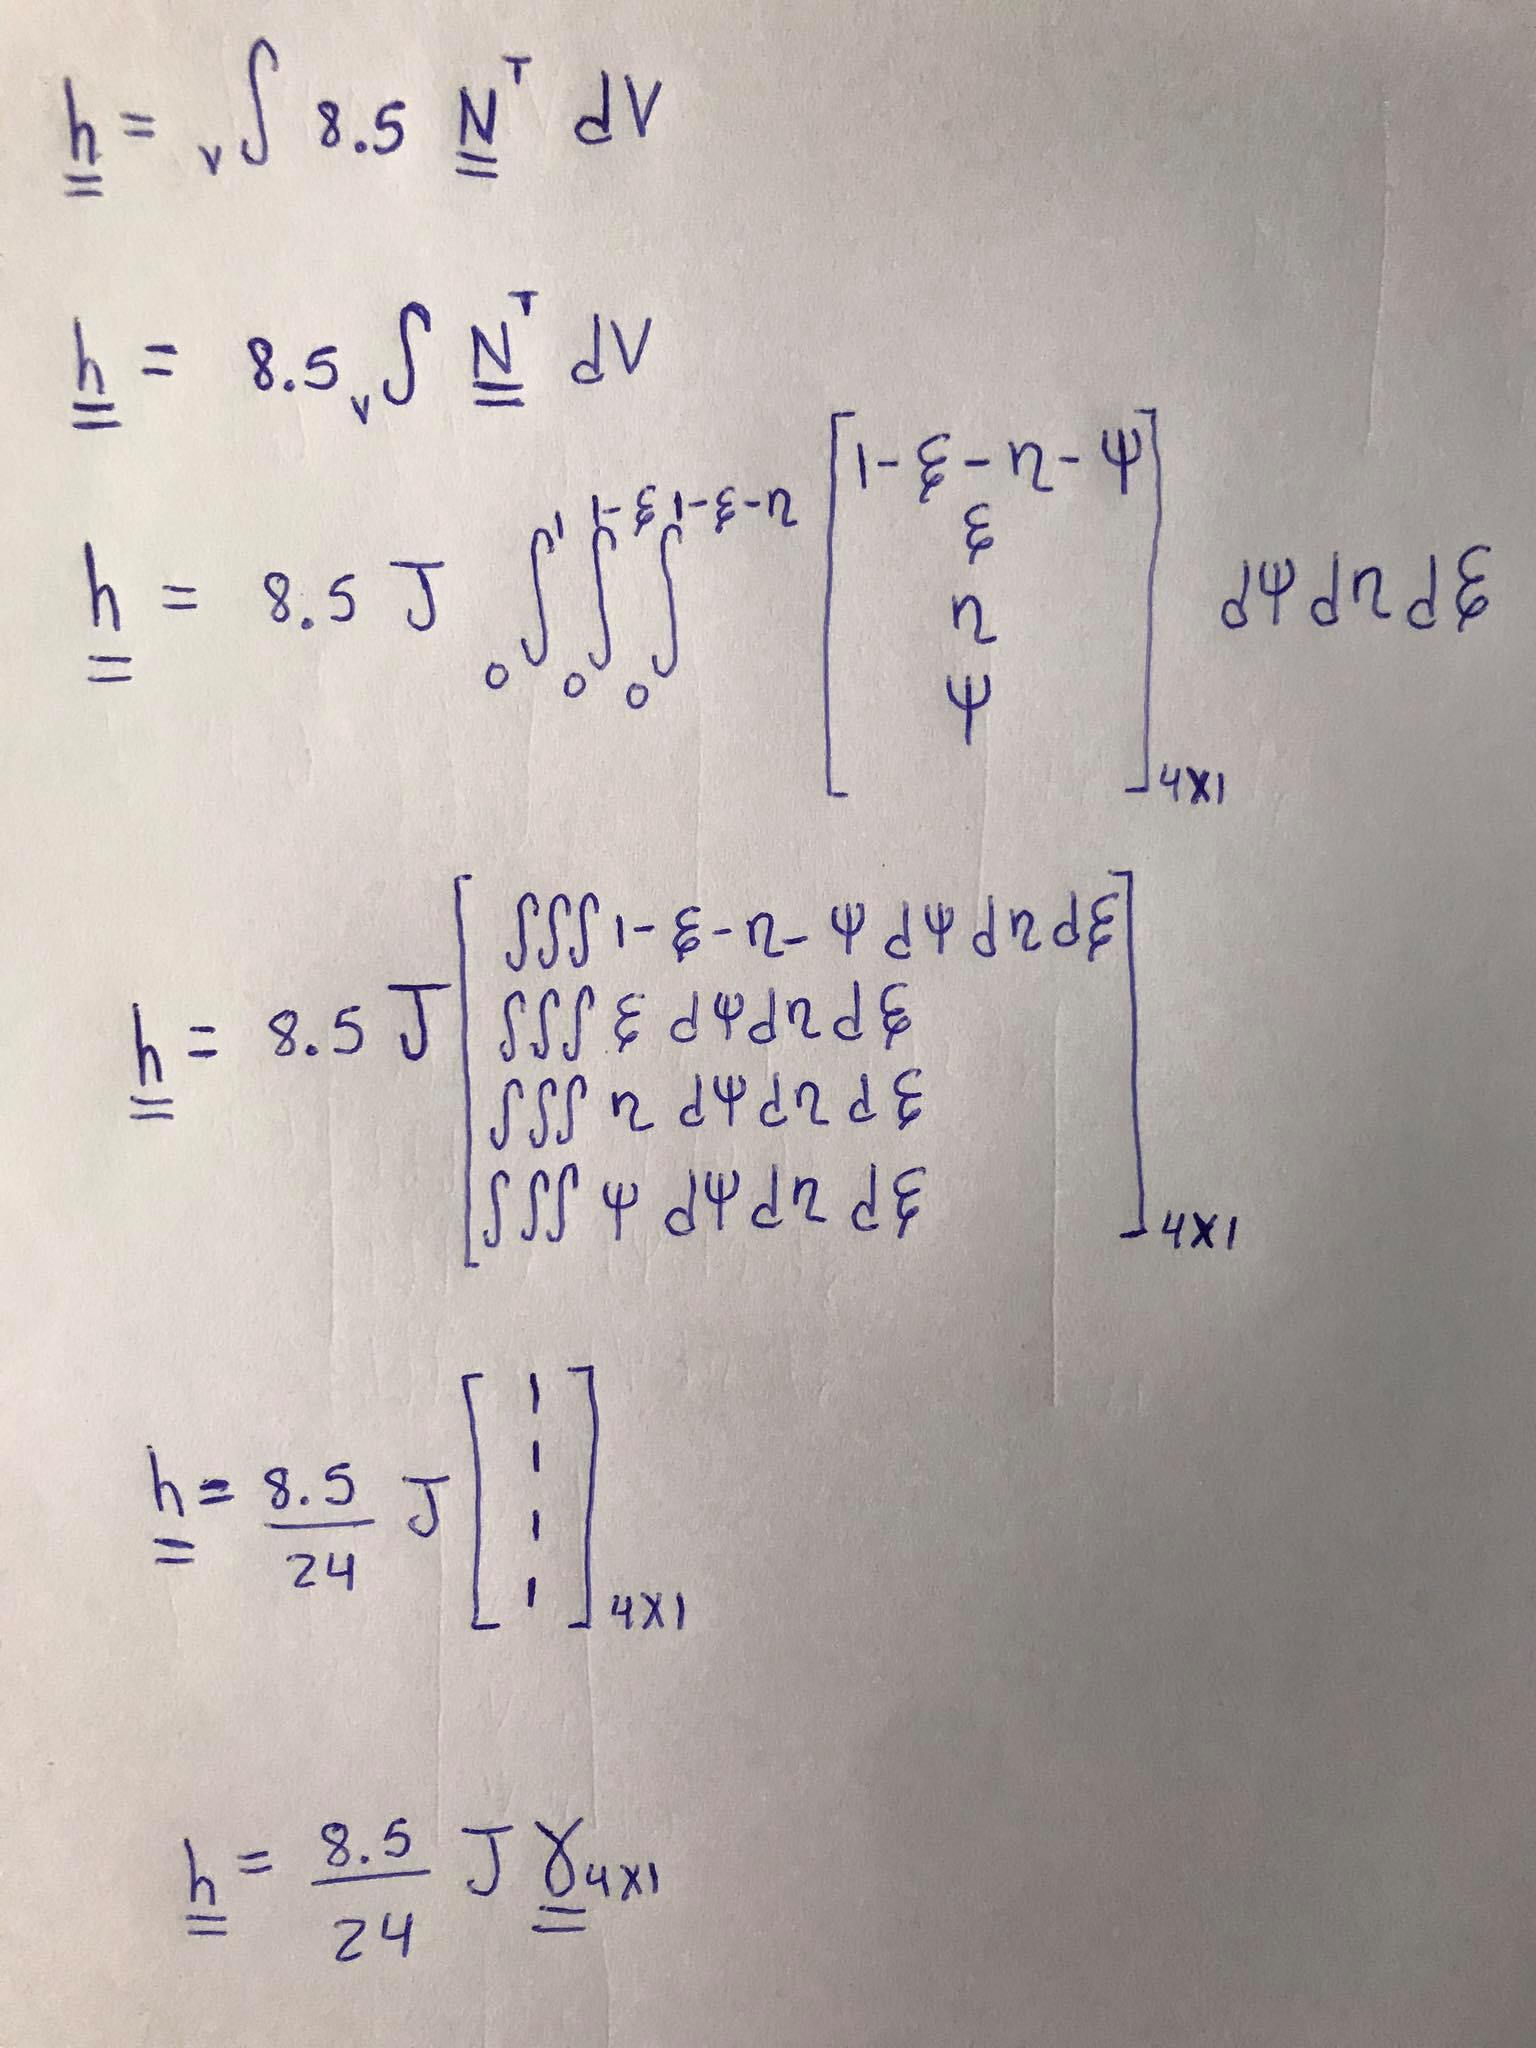 h = v∫ 8.5 N^T dV
h = 8.5 v∫ N^T dV
h = 8.5 J ∫₀¹ ∫₀^(1-ξ) ∫₀^(1-ξ-η) [1-ξ-η-ψ
ξ
η
ψ]4x1 dψ dη dξ
h = 8.5 J [∫∫∫ 1-ξ-η-ψ dψ dη dξ
∫∫∫ ξ dψ dη dξ
∫∫∫ η dψ dη dξ
∫∫∫ ψ dψ dη dξ]4x1
h = 8.5/24 J [1
1
1
1]4x1
h = 8.5/24 J γ4x1